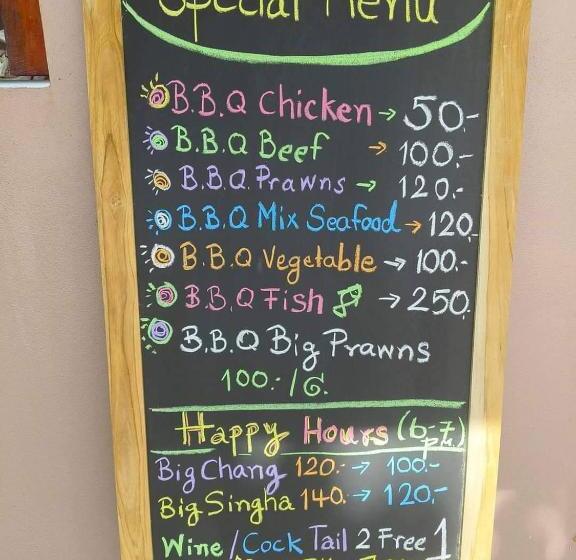 Special Menu
B.B.Q Chicken → 50.-
B.B.Q Beef → 100.-
B.B.Q. Prawns → 120.-
B.B.Q Mix Seafood → 120.
B.B.Q Vegetable → 100.-
B.B.Q Fish → 250.
B.B.Q Big Prawns
100.-/G.
Happy Hours (6-7)
pm
Big Chang 120.- → 100.-
Big Singha 140. → 120.-
Wine / Cock Tail 2 Free 1